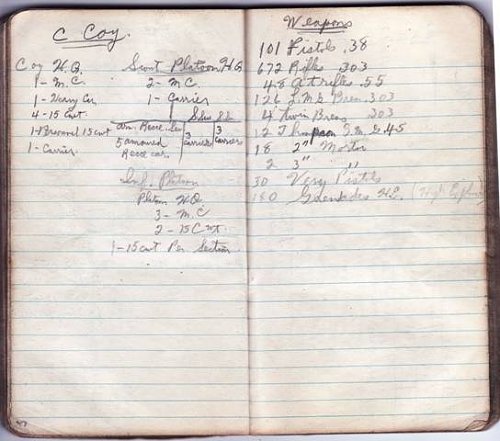 C Coy.
Coy H.Q.
1 - M.C.
1 - Heavy Car
4 - 15 Cwt.
1 - Personnel 15 cwt
1 - Carrier.
Scout Platoon H.Q
2 - M C
1 - Carrier
Arm. Recce. Sec
5 armoured
Recce car.
S. Sec
3
carriers
S. Sec
3
carriers
Inf. Platoon
Platoon H.Q.
3 - M.C
2 - 15 Cwt.
1 - 15 cwt Per Section
Weapons
101 Pistols .38
672 Rifles .303
48 A.T. rifles .55
L.M.G Bren .303
4 Twin Brens .303
12 Thompson S.M.G .45
18 2" Mortor
2 3" ,,
30 Very Pistols
Grenades H.E. (High Explosive